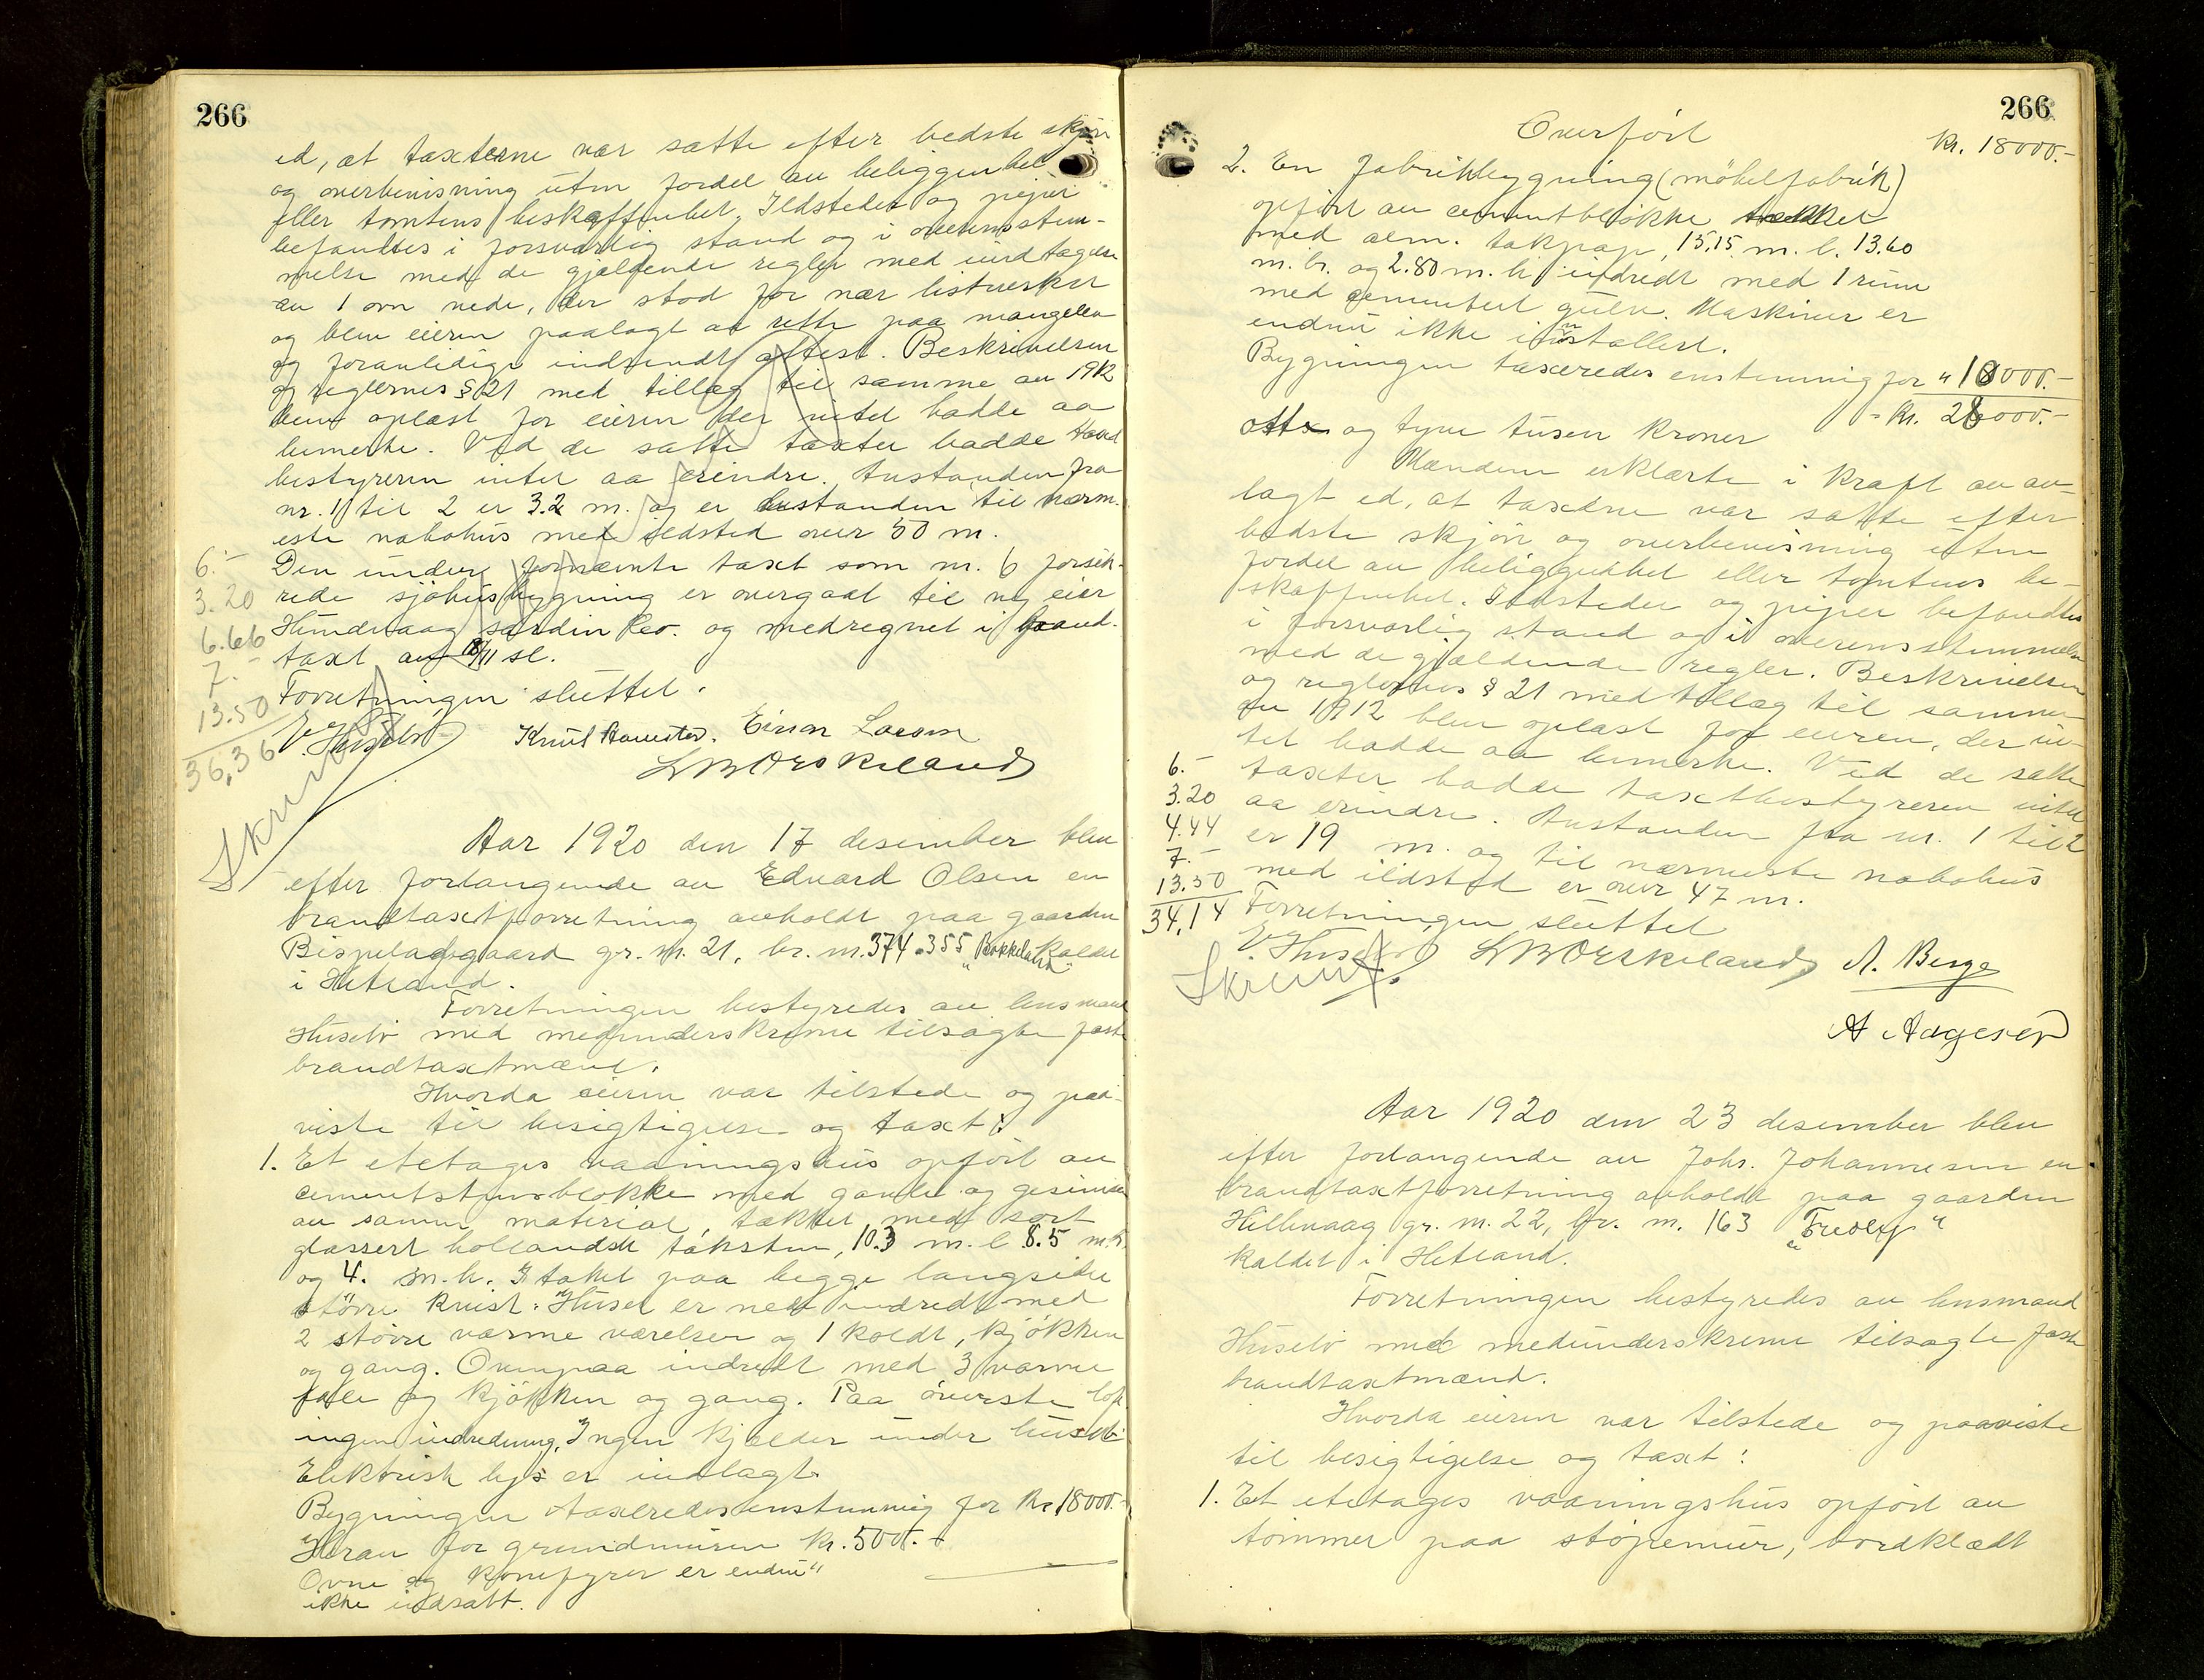 266
ed, at taxterne var satte efter bedste skjøn
og overbevisning uten fordel av beliggenhet
eller tomtens beskaffenhet. Ildsteder og piper
befandtes i forsvarlig stand og i overensstem-
melse med de gjældende regler med undtagelse
av 1 ovn nede, der stod for nær listverket
og blev eieren paalagt at rette paa mangelen
og foranledige indsendt attest. Beskrivelsen
og reglernes § 21 med tillæg til samme av 1912
blev oplæst for eieren der intet hadde aa
bemerke. Ved de satte taxter hadde taxt
bestyreren intet aa erindre. Avstanden fra
nr. 1 til 2 er 3.2 m. og er avstanden til nærm-
este nabohus med ildsted over 50 m.
Den under fornævnte taxt som nr. 6 forsik-
rede sjøhusbygning er overgaat til ny eier
Hundvaag sardin Co. og medregnet i brand-
taxt av 18/11 sl.
Forretningen sluttet.
6.-
3.20
6.66
7.-
13.50
36,36
E. Huselv Knut Haversten. Einar Larsen
L B Orskeland
Skrevet
Aar 1920 den 17 desember blev
efter forlangende av Edvard Olsen en
brandtaxtforretning avholdt paa gaarden
Bispeladegaard gr. nr. 21, br. nr. 374 & 355 "Bokkeland" kaldet
i Hetland.
Forretningen bestyredes av lensmand
Huselv med medunderskrevne tilsagte faste
brandtaxtmænd.
Hvorda eieren var tilstede og paa-
viste til besigtigelse og taxt:
1. Et etetages vaaningshus opført av
cementstensblokke med gavle og gesimser
av samme material, tækket med sort
glassert hollandsk taksten, 10.3 m. l. 8.5 m. b.
og 4. m. h. I taket paa begge langsider
større kvist. Huset er nede indredt med
2 større varme værelser og 1 koldt, kjøkken
og gang. Ovenpaa indredt med 3 varme
og kjøkken og gang. Paa øverste loft
ingen indredning. Ingen kjelder under huset.
Elektrisk lys er indlagt.
Bygningen taxeredes enstemmig for Kr. 18000.-
Herav for grundmuren kr. 500.-
Ovne og komfyrer er endnu
ikke indsatt.
266
Overført Kr. 18000.-
2. En fabrikbygning (møbelfabrik)
opført av cementblokke tækket
med alm. takpap, 15,15 m. l. 13.60
m. br. og 2.80 m. h. indredt med 1 rum
med cementert gulv. Maskiner er
endnu ikke installert.
Bygningen taxeredes enstemmig for " 10000.-
= Kr. 28000.-
otte og tyve tusen kroner
Mændene erklærte i kraft av av-
lagt ed, at taxterne var satte efter
bedste skjøn og overbevisning uten
fordel av beliggenhet eller tomtens be-
skaffenhet. Ildsteder og piper befandtes
i forsvarlig stand og i overensstemmelse
med de gjældende regler. Beskrivelsen
og reglernes § 21 med tillæg til samme
av 1912 blev oplæst for eieren, der in-
tet hadde aa bemerke. Ved de satte
taxter hadde taxtbestyreren intet
aa erindre. Avstanden fra nr. 1 til 2
er 19 m. og til nærmeste nabohus
med ildsted er over 47 m.
Forretningen sluttet
6.-
3.20
4.44
7.-
13.50
34,14
E. Huselv L B Orskeland A. Berge
Skrevet.
A Aagesen
Aar 1920 den 23 desember blev
efter forlangende av Johs. Johannesen en
brandtaxtforretning avholdt paa gaarden
Hillevaag gr. nr. 22, br. nr. 163 "Fredly"
kaldet i Hetland.
Forretningen bestyredes av lensmand
Huselv med medunderskrevne tilsagte faste
brandtaxtmænd.
Hvorda eieren var tilstede og paaviste
til besigtigelse og taxt:
1. Et etetages vaaningshus opført av
tømmer paa støpemur, bordklædt